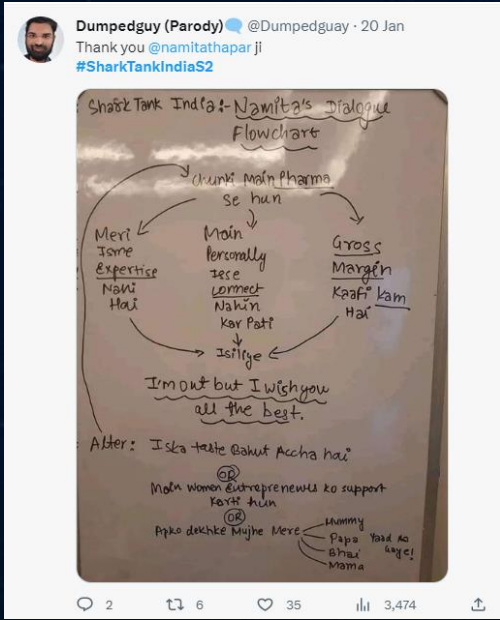 Dumpedguy (Parody)🗨 @Dumpedguay · 20 Jan
Thank you @namitathapar ji
#SharkTankIndiaS2
: Shark Tank India:- Namita's Dialogue
Flowchart
Chunki Main Pharma
se hun
Meri
Isme
Expertise
Nahi
Hai
Main
Personally
Isse
Connect
Nahin
Kar Pati
Gross
Margin
Kaafi kam
Hai
Isiliye
I'm out but I wish you
all the best.
: Alter: Iska taste Bahut Accha hai
OR
Main women Entrepreneurs ko support
Karti hun
OR
Apko dekhke Mujhe Mere
Mummy
Papa Yaad Aa
Bhai Gaye!
Mama
2 6 35 3,474